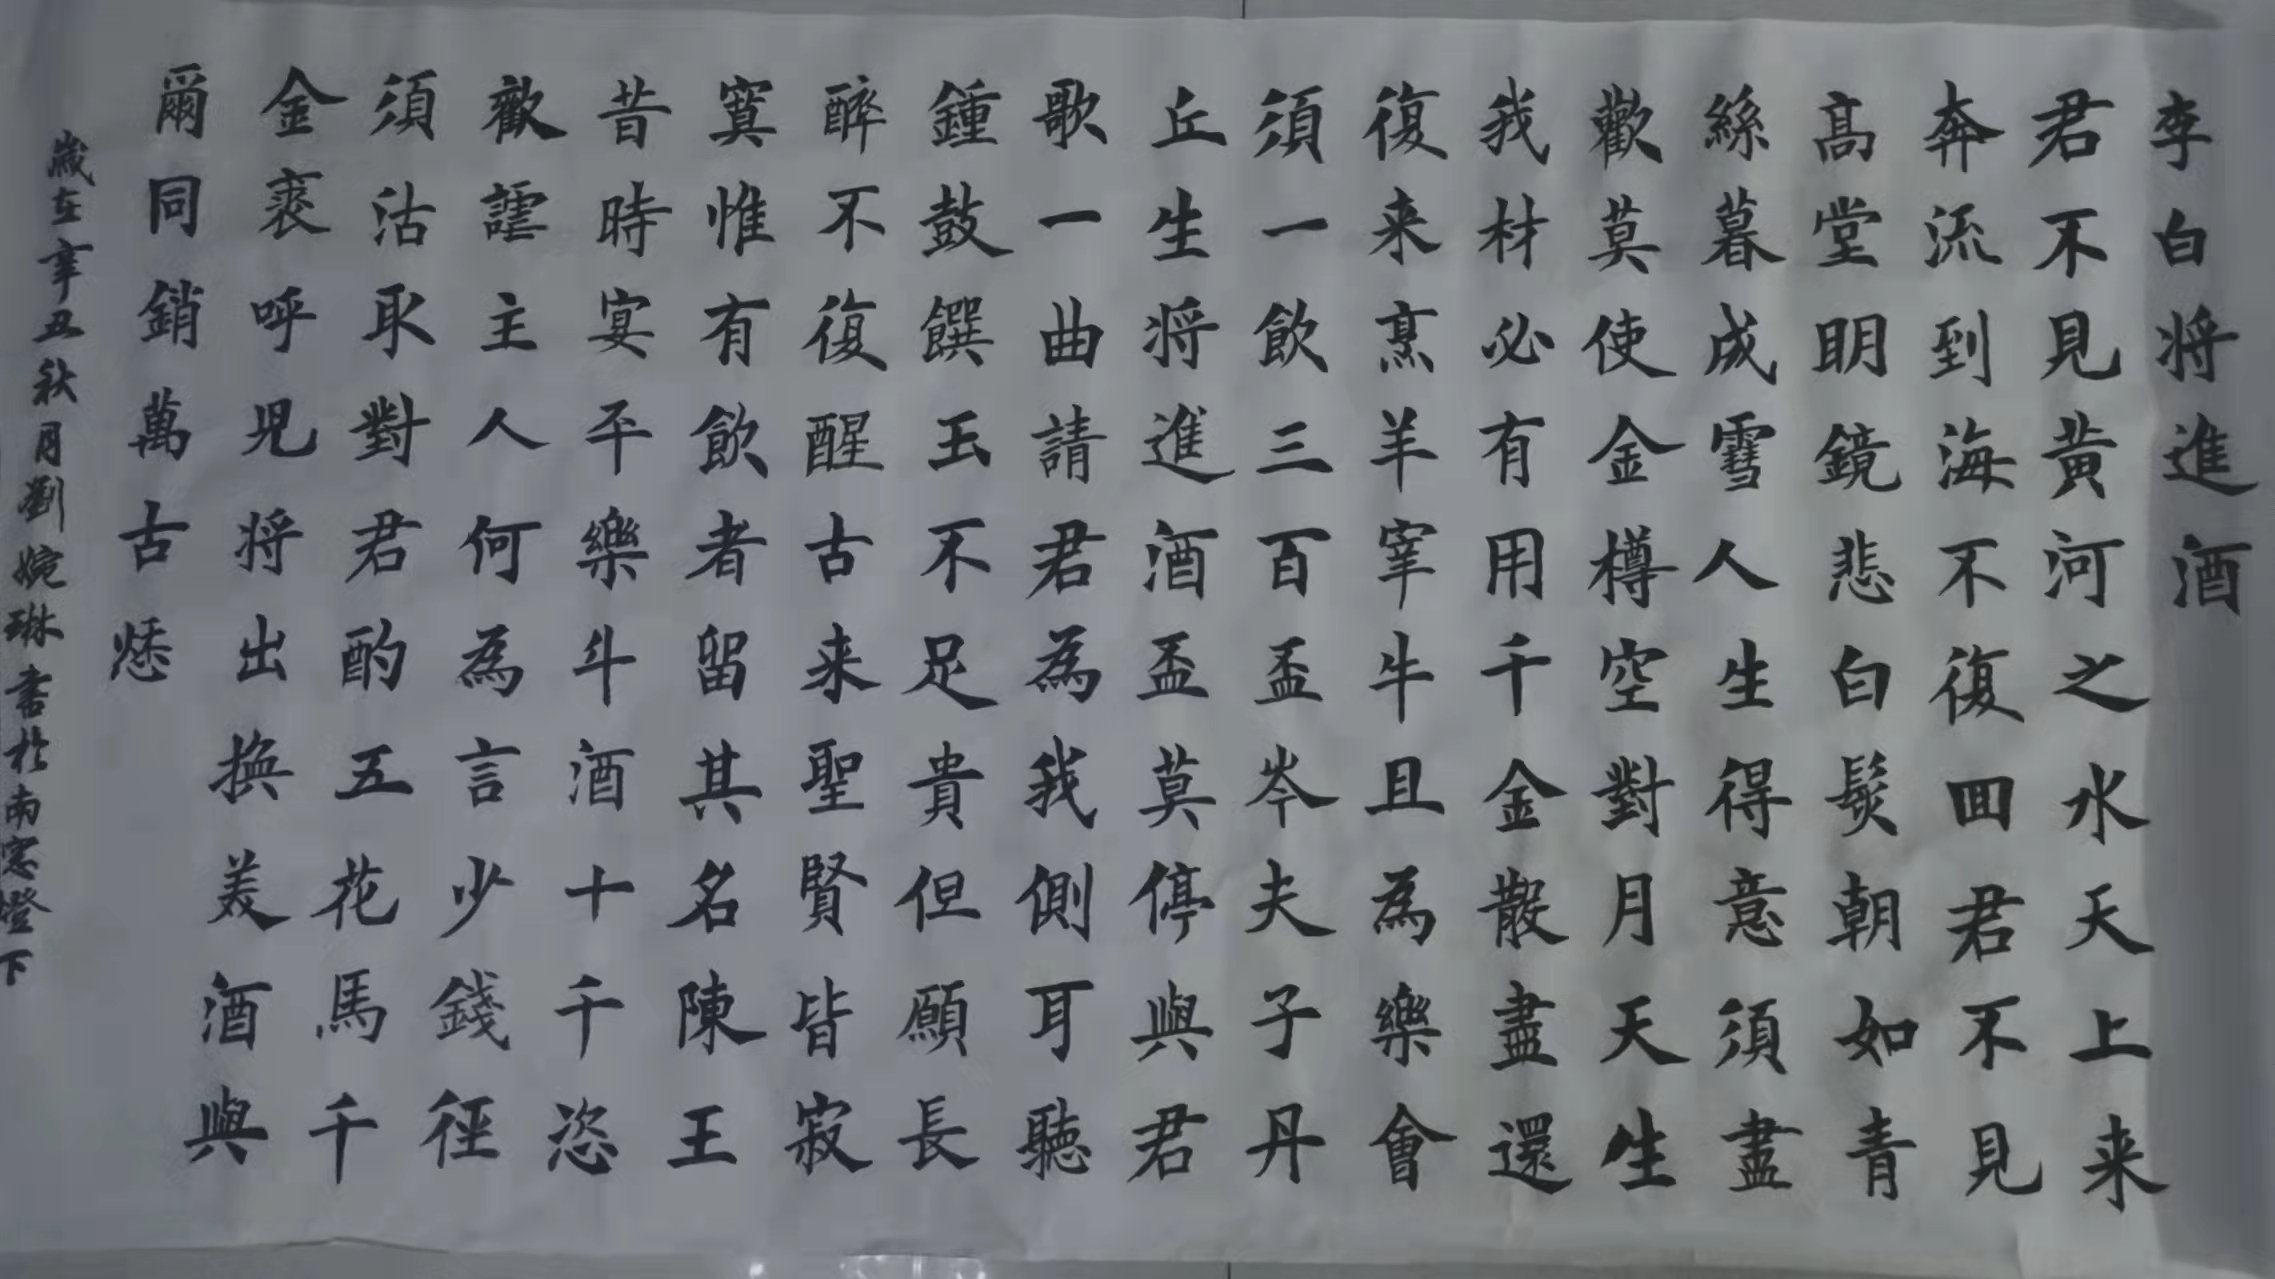 李白将進酒
君不見黄河之水天上来
奔流到海不復回君不見
高堂明鏡悲白髮朝如青
絲暮成雪人生得意須盡
歡莫使金樽空對月天生
我材必有用千金散盡還
復来烹羊宰牛且為樂會
須一飲三百盃岑夫子丹
丘生将進酒盃莫停與君
歌一曲請君為我側耳聽
鍾鼓饌玉不足貴但願長
醉不復醒古来聖賢皆寂
寞惟有飲者留其名陳王
昔時宴平樂斗酒十千恣
歡謔主人何為言少錢徑
須沽取對君酌五花馬千
金裘呼児将出換美酒與
爾同銷萬古愁
歲在辛丑秋月劉婉琳書於南窓燈下